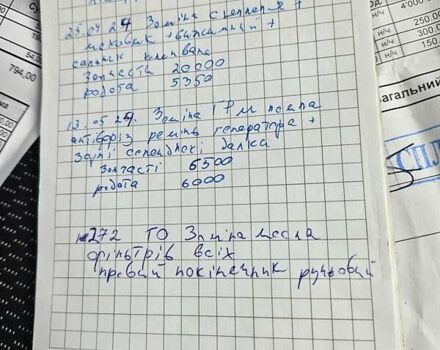 25.04 24 Заміна счеплення +
маховик +вижимний +
сальник колінвала
Запчасти 20000
робота 5350
13.05 24. Заміна ГРМ помпа
антіфріз ремінь генератора +
Задні саленблокі балка
Запчасті 6500
робота 6000
272 ТО Заміна масла
фільтрів всіх
правий покінечник рульовий
794,00
н/ч
н/ч
н/ч
4'000
250,00
300,00
150
агальний
СПЛ